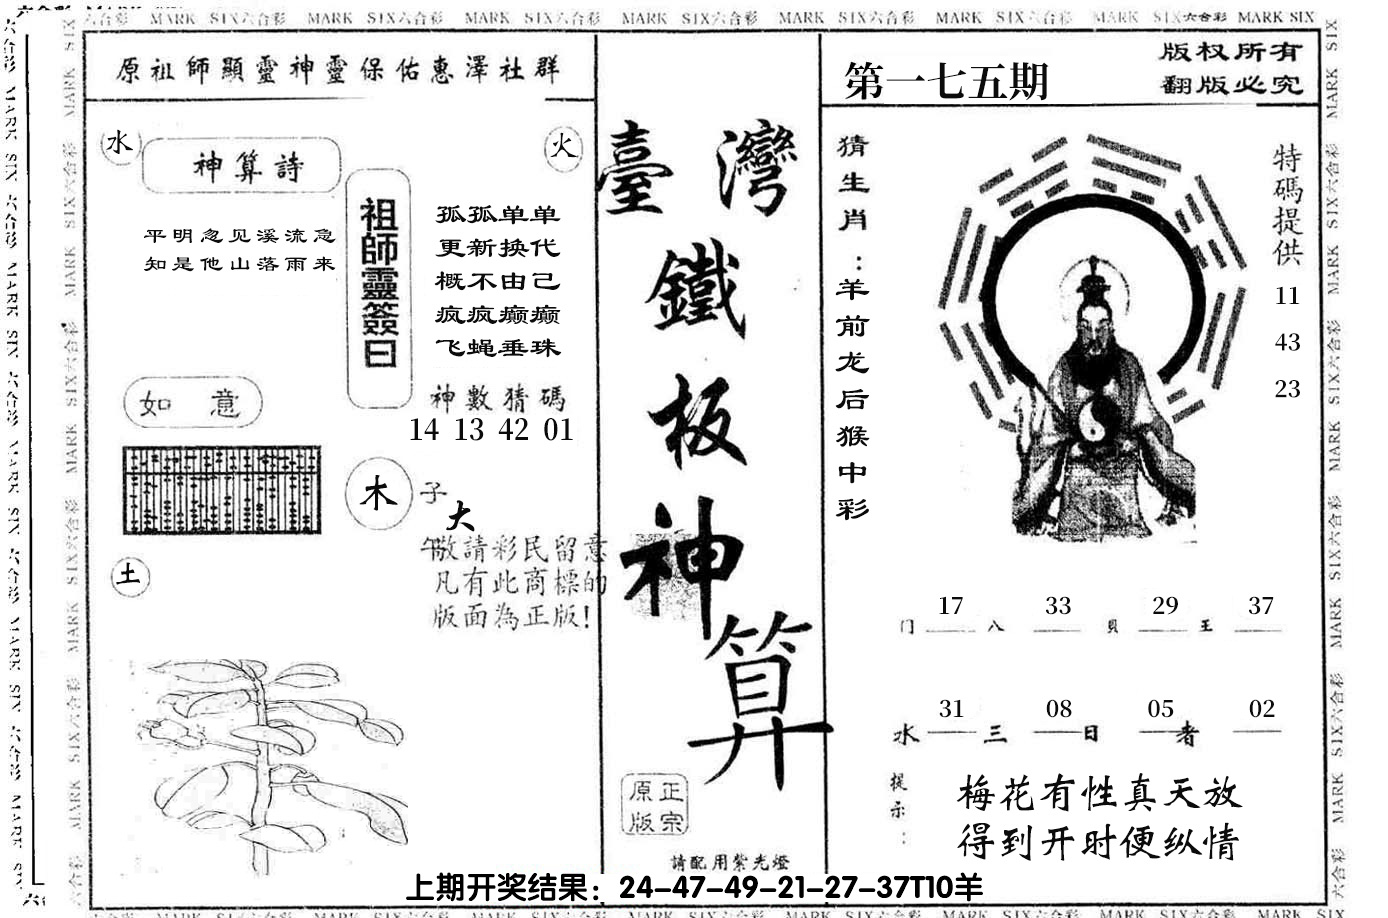 MARK SIX六合彩 MARK SIX六合彩 MARK SIX六合彩 MARK SIX六合彩 MARK SIX六合彩 MARK SIX六合彩 MARK SIX六合彩 MARK SIX
原祖師顯靈神靈保佑惠澤社群
水
神算詩
火
平明忽见溪流急
知是他山落雨来
祖師靈簽曰
孤孤单单
更新换代
概不由己
疯疯癫癫
飞蝇垂珠
神數猜碼
14 13 42 01
如意
木
子
大
午
敬請彩民留意
凡有此商標的
版面為正版!
土
臺灣
鐵
板
神
算
正宗
原版
請配用紫光燈
第一七五期
版权所有
翻版必究
猜生肖:羊前龙后猴中彩
特碼提供
11
43
23
17 33 29 37
门 八 貝 王
31 08 05 02
水 三 日 者
提示:
梅花有性真天放
得到开时便纵情
上期开奖结果：24-47-49-21-27-37T10羊